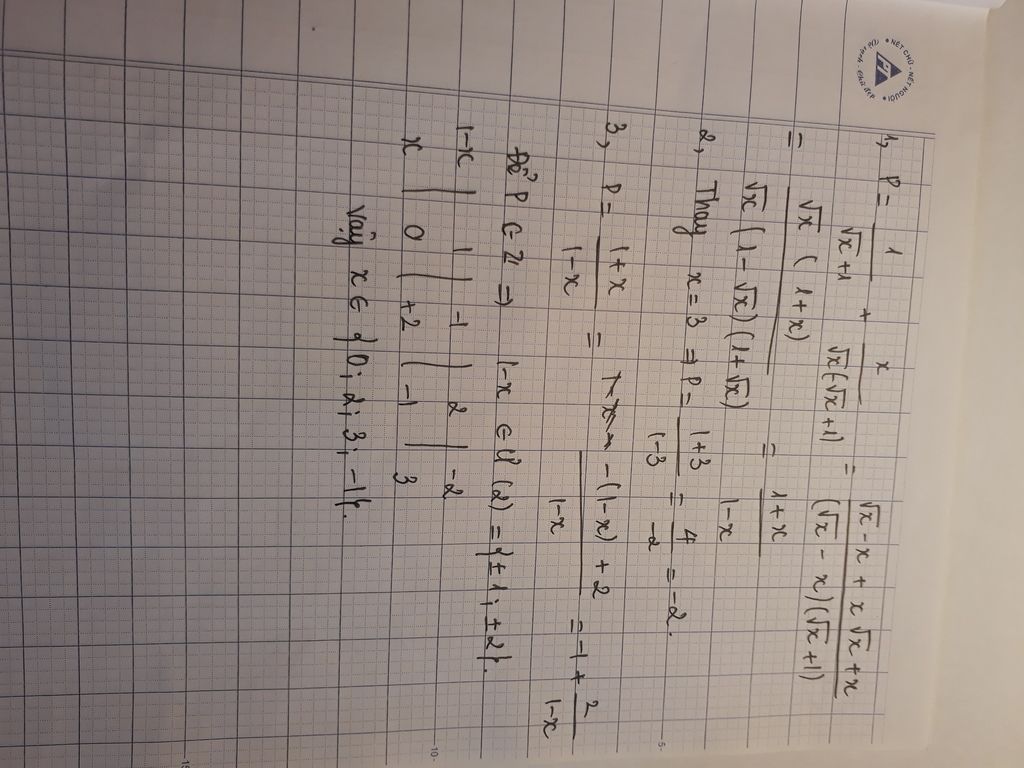 NÉT CHỮ - NẾT NGƯỜI
1, P = 1/(√x+1) + x/(√x(√x+1)) = (√x - x + x√x + x)/((√x - x)(√x+1))
= √x(1+x)/(√x(1-√x)(1+√x)) = (1+x)/(1-x)
2, Thay x = 3 => P = (1+3)/(1-3) = 4/-2 = -2.
3, P = (1+x)/(1-x) = (-(1-x)+2)/(1-x) = -1 + 2/(1-x)
Để P ∈ Z => 1-x ∈ Ư(2) = {±1; ±2}.
1-x | 1 | -1 | 2 | -2
x | 0 | +2 | -1 | 3
Vậy x ∈ {0; 2; 3; -1}.
5
10
15